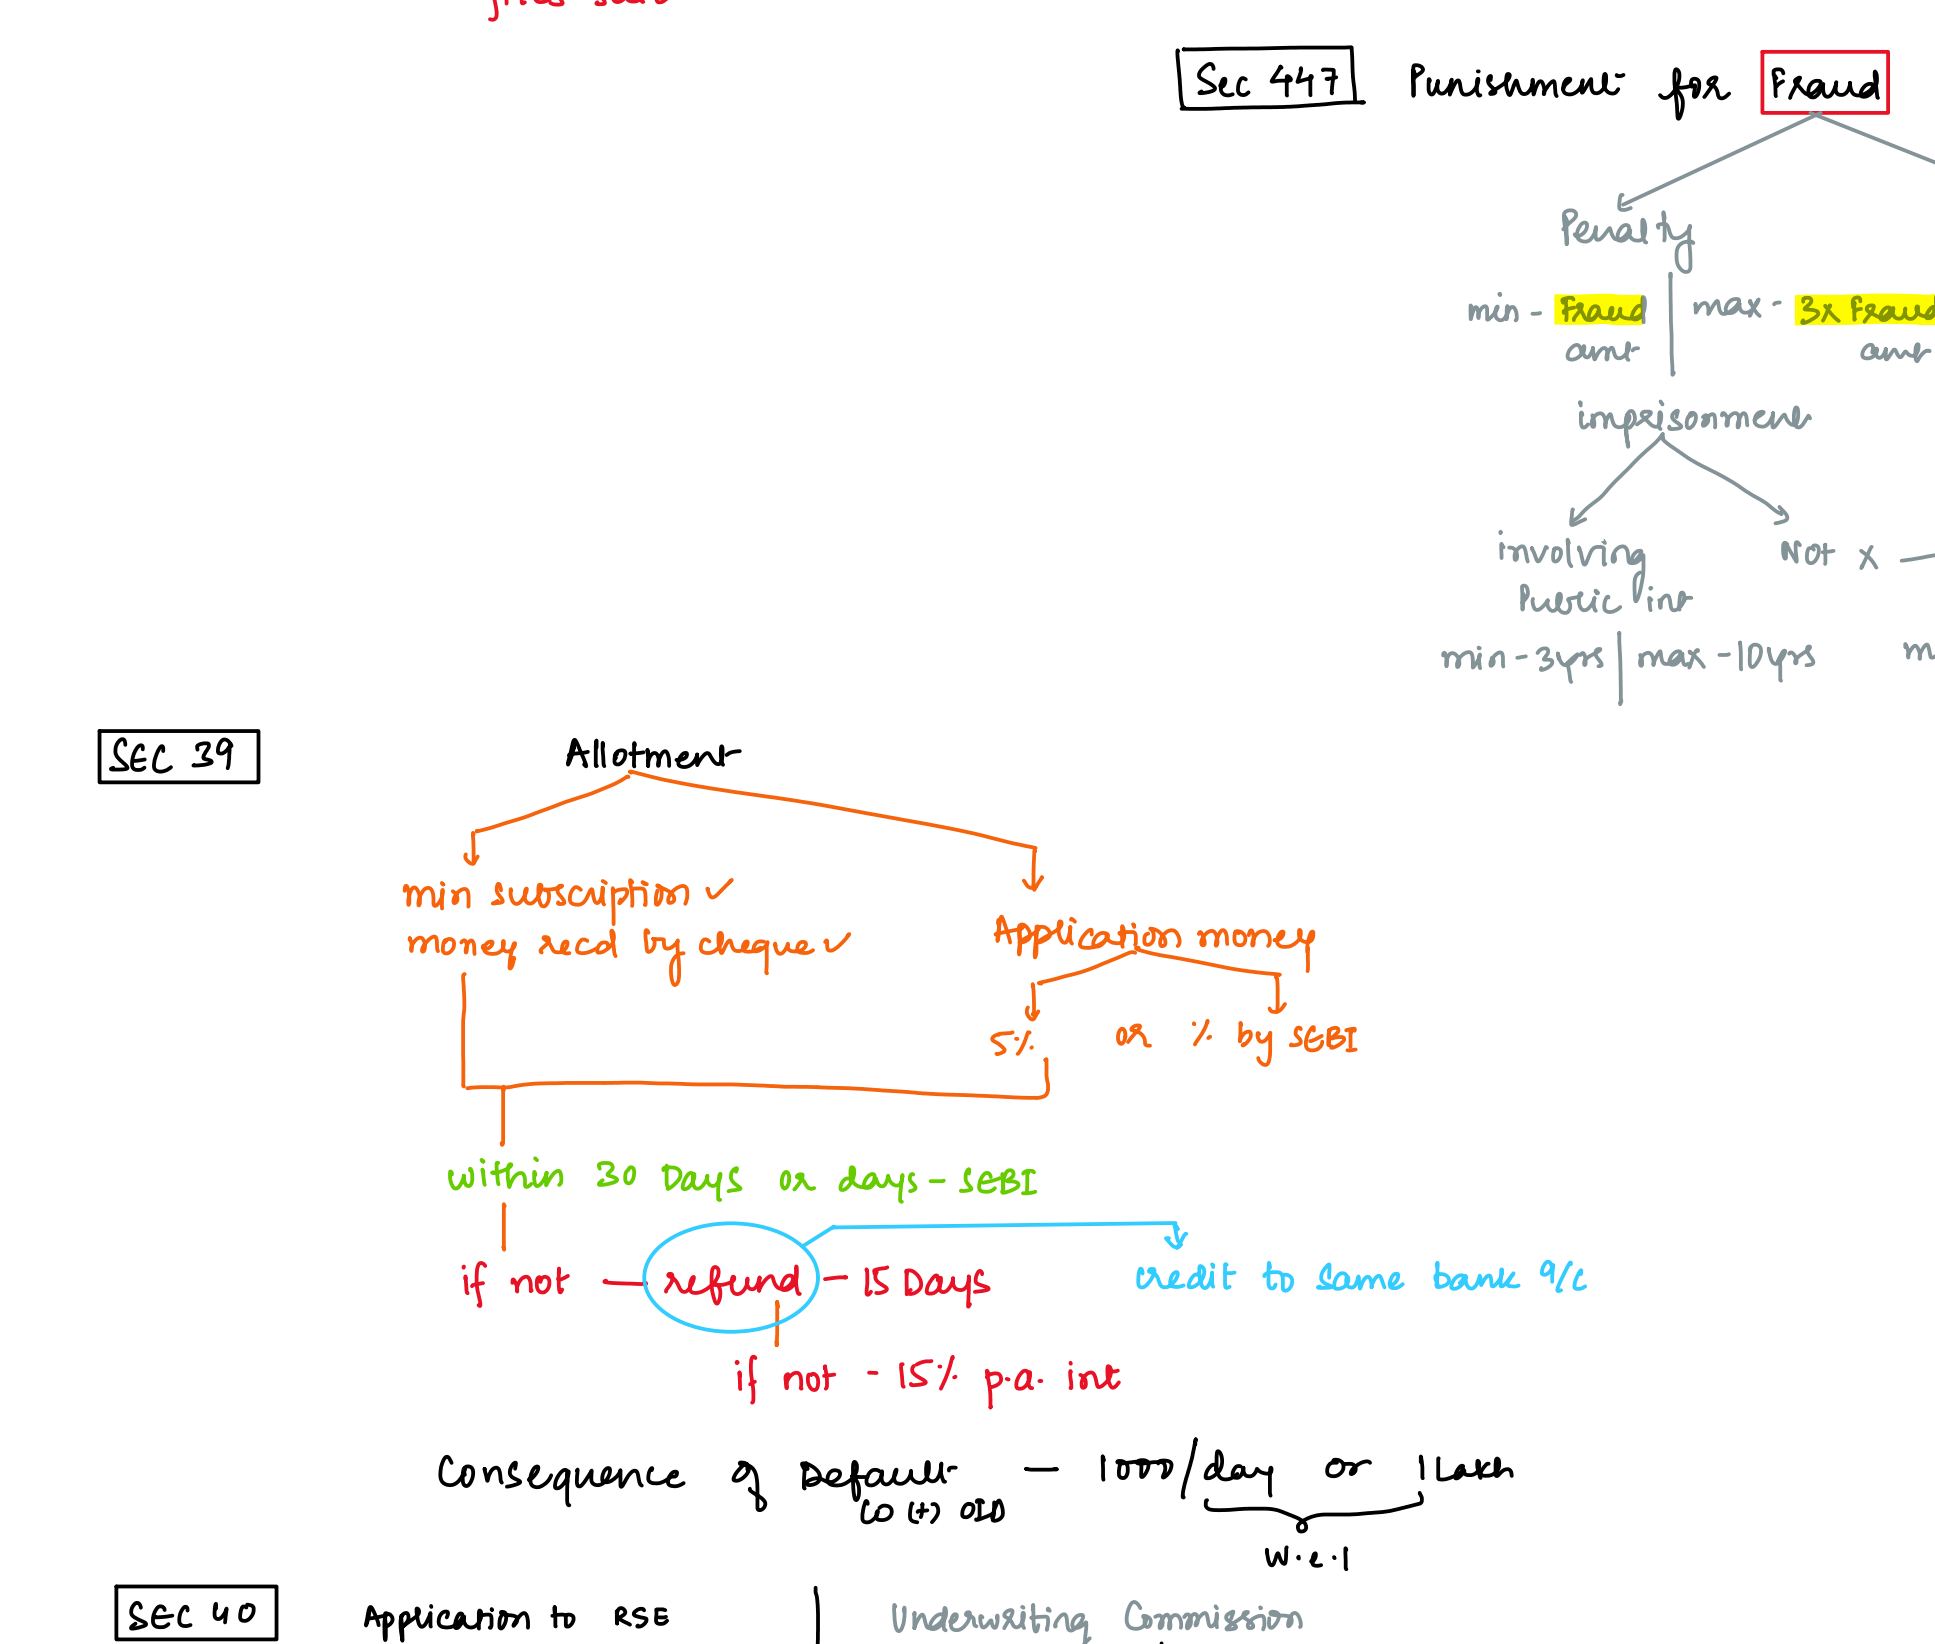 Sec 447 Punishment for Fraud
Penalty
min - Fraud amt | max - 3x Fraud amt
imprisonment
involving Public int
Not x
min - 3yrs | max - 10yrs
SEC 39 Allotment
min subscription ✓
money recd by cheque ✓
Application money
5% or % by SEBI
within 30 Days or days - SEBI
if not - refund - 15 Days
credit to same bank a/c
if not - 15% p.a. int
Consequence of Default - 1000/day or 1 Lakh
CO (+) OID
w.e.l
SEC 40 Application to RSE | Underwriting Commission